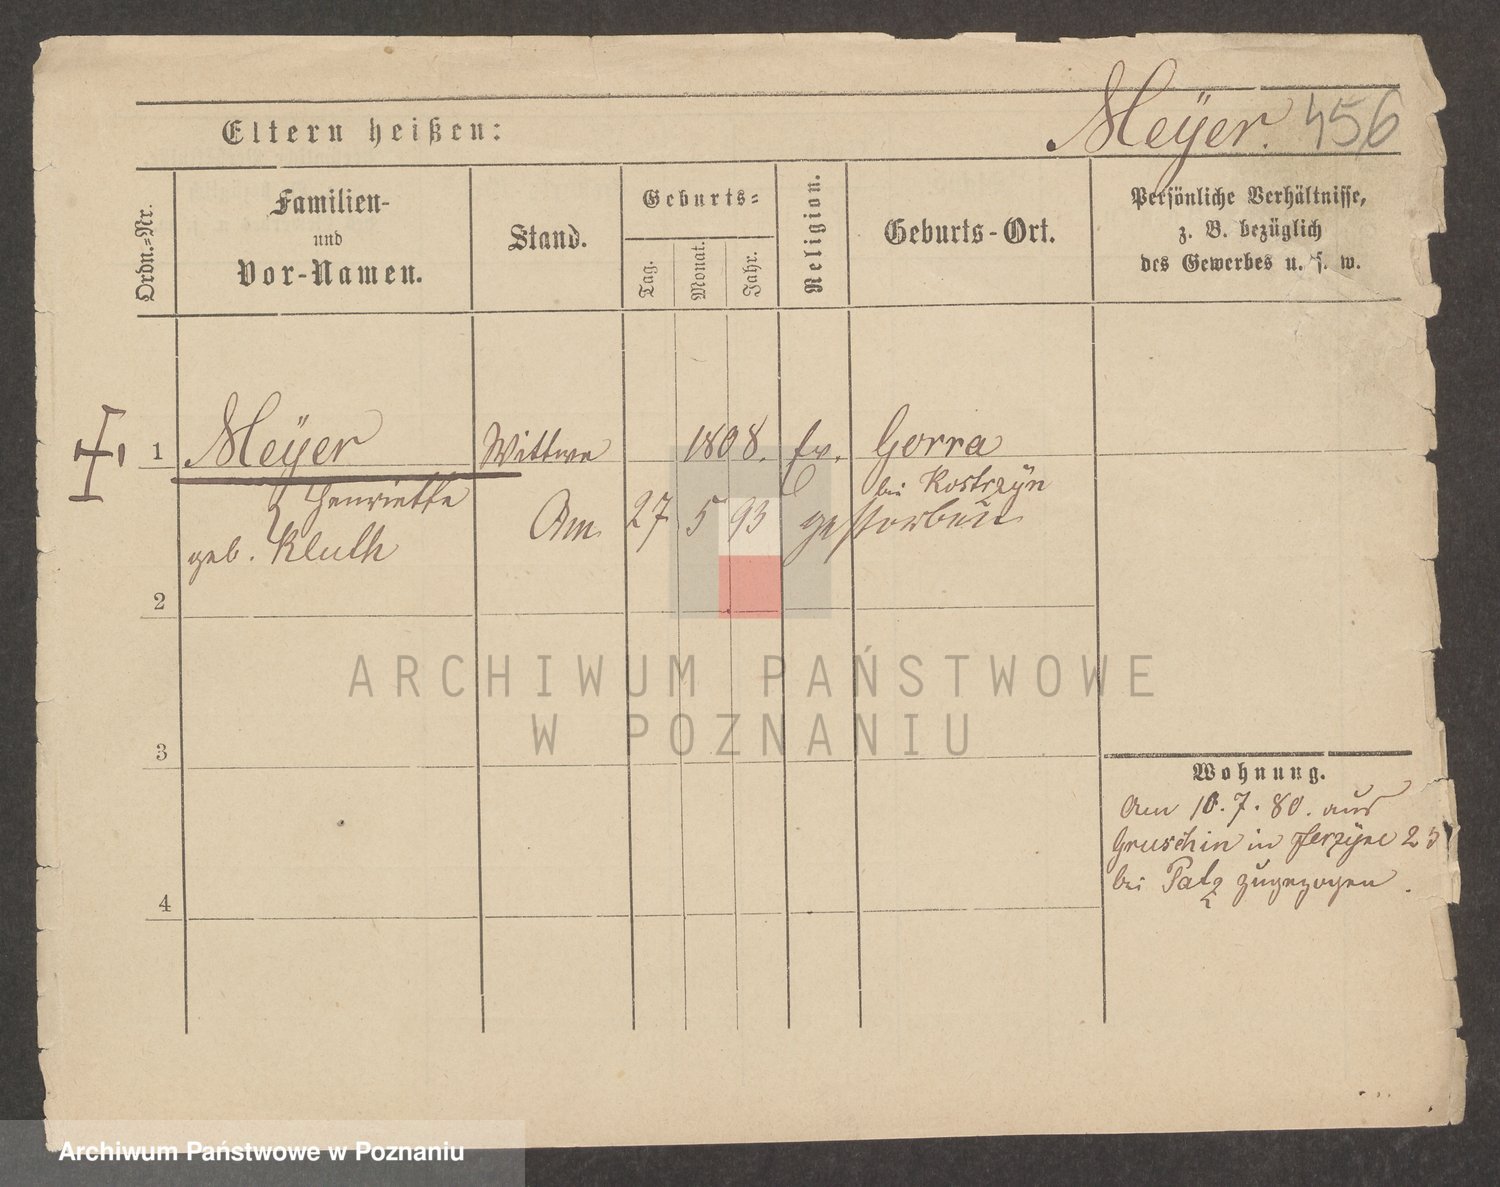 Meÿer. 456
Eltern heißen:
Ordn.=Nr.
Familien-
und
Vor-Namen.
Stand.
Geburts=
Tag.
Monat.
Jahr.
Religion.
Geburts-Ort.
Persönliche Verhältnisse,
z. B. bezüglich
des Gewerbes u. s. w.
1 Meÿer Wittwe 1808. Ev. Gorra
bei Kostrzÿn
Henriette
Am 27 5 93 gestorben
geb. Kluth
2
3
4
Wohnung.
Am 10.7.80. aus
Gruschin in Jerzÿce 23
bei Patz zugezogen.
ARCHIWUM PAŃSTWOWE
W POZNANIU
Archiwum Państwowe w Poznaniu